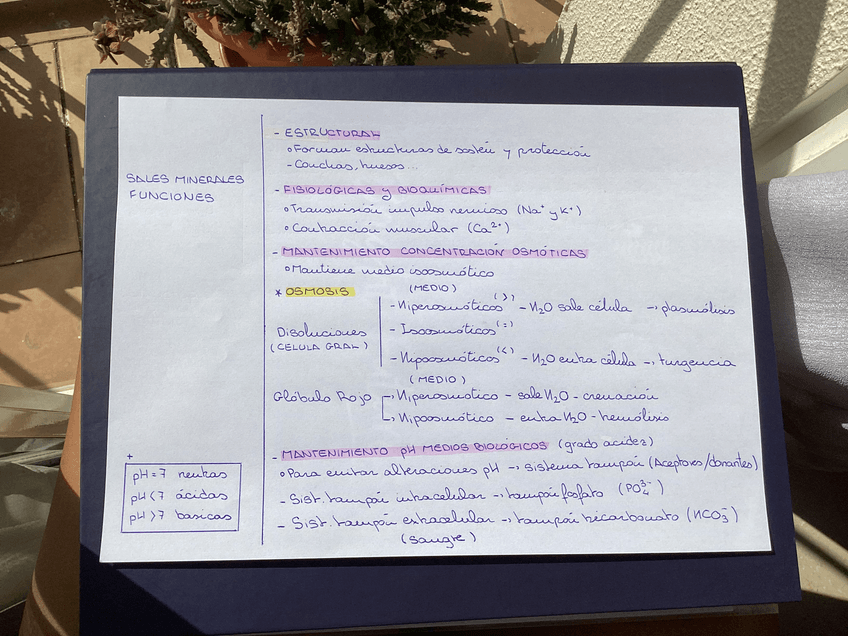 SALES MINERALES
FUNCIONES
- ESTRUCTURAL
∘ Forman estructuras de sostén y protección
- Conchas, huesos...
- FISIOLÓGICAS y BIOQUÍMICAS
∘ Transmisión impulso nervioso (Na⁺ y K⁺)
∘ Contracción muscular (Ca²⁺)
- MANTENIMIENTO CONCENTRACIÓN OSMÓTICAS
∘ Mantiene medio isosmótico
* OSMOSIS
(MEDIO)
Disoluciones
(CELULA GRAL)
- Hiperosmóticos (>) - H₂O sale célula → plasmólisis
- Isosmóticos (=)
- Hipoosmóticos (<) - H₂O entra célula → turgencia
(MEDIO)
Glóbulo Rojo → Hiperosmótico - sale H₂O - crenación
→ Hipoosmótico - entra H₂O - hemólisis
- MANTENIMIENTO pH MEDIOS BIOLÓGICOS (grado acidez)
∘ Para evitar alteraciones pH → Sistema tampón (Aceptores/donantes)
- Sist. tampón intracelular → tampón fosfato (PO₄³⁻)
- Sist. tampón extracelular → tampón bicarbonato (HCO₃⁻)
(sangre)
+
pH = 7 neutras
pH < 7 ácidas
pH > 7 basicas